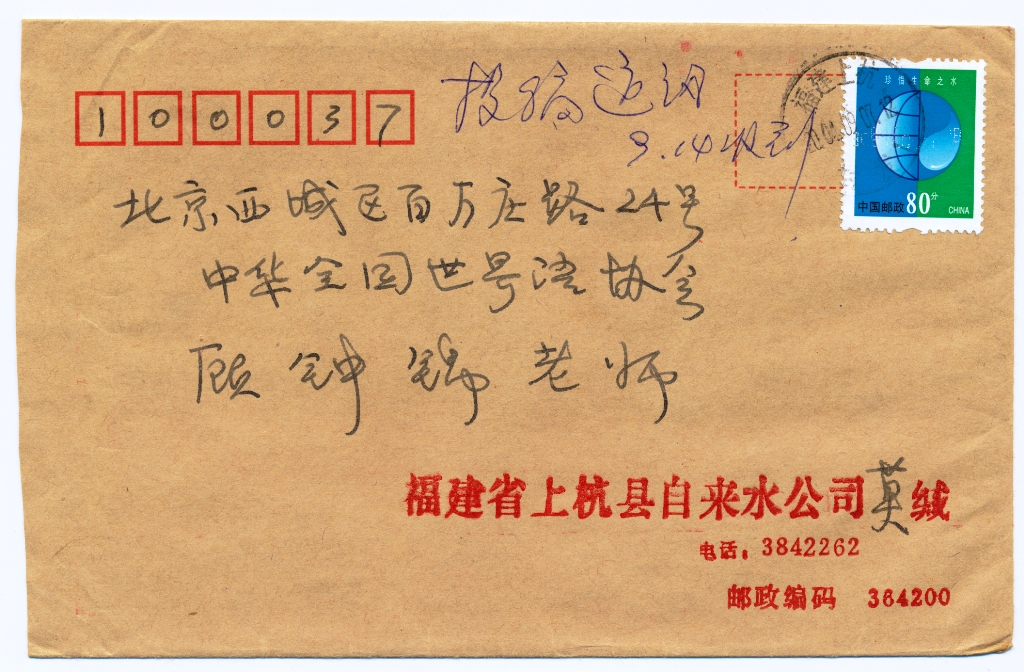 100037
投稿
9.14收到
珍惜生命之水
福建上杭
中国邮政80分 CHINA
北京西城区百万庄路24号
中华全国世界语协会
顾钟锦老师
福建省上杭县自来水公司 莫 缄
电话：3842262
邮政编码 364200